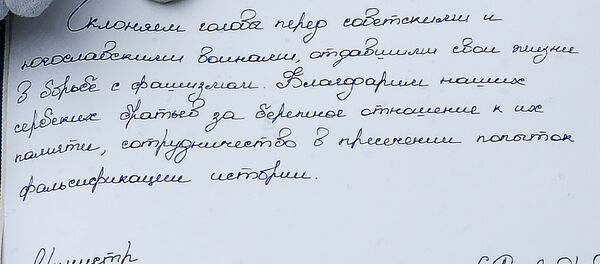 Склоняем головы перед советскими и
югославскими воинами, отдавшими свои жизни
в борьбе с фашизмом. Благодарим наших
сербских братьев за бережное отношение к их
памяти, сотрудничество в пресечении попыток
фальсификации истории.
Министр